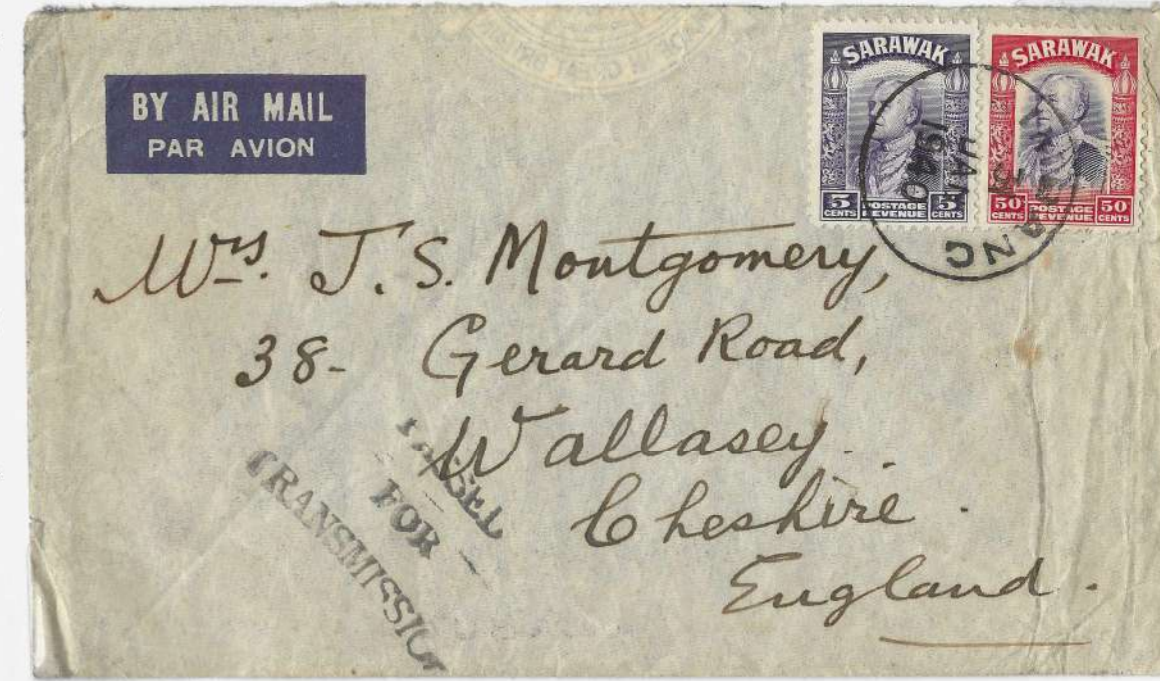 BY AIR MAIL
PAR AVION
SARAWAK
5 CENTS POSTAGE REVENUE 5 CENTS
SARAWAK
50 CENTS POSTAGE REVENUE 50 CENTS
JAN
1940
Mrs. J. S. Montgomery,
38- Gerard Road,
Wallasey.
Cheshire.
England.
FOR
TRANSMISSION